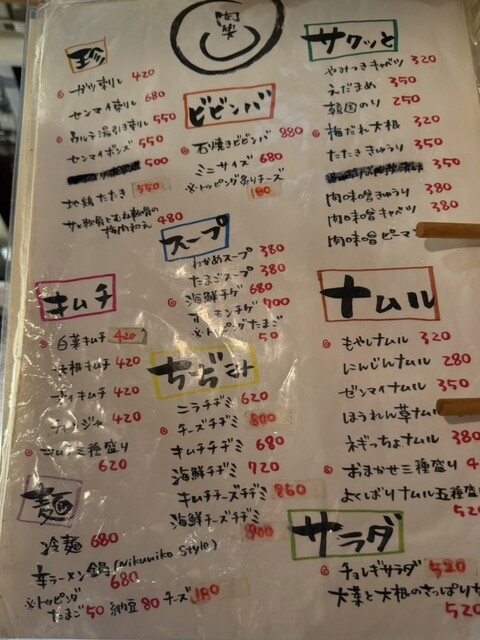 肉笑
珍
ガツ刺し 420
センマイ刺し 680
ウルテ湯引き刺し 550
センマイポンズ 550
500
地鶏たたき 550
サメ軟骨とむね軟骨の
梅肉和え 480
ビビンバ
石焼きビビンバ 880
ミニサイズ 680
※トッピング炙りチーズ
180
スープ
わかめスープ 380
たまごスープ 380
海鮮チゲ 680
ホルモンチゲ 700
※トッピングたまご
50
キムチ
白菜キムチ 420
大根キムチ 420
ネイキムチ 420
チャンジャ 420
キムチ三種盛り
620
ちぢみ
ニラチヂミ 620
チーズチヂミ 800
キムチチヂミ 680
海鮮チヂミ 720
キムチチーズチヂミ 860
海鮮チーズチヂミ
900
麺
冷麺 680
辛ラーメン鍋 (Nikuniko Style)
680
※トッピング
たまご 50 納豆 80 チーズ 180
サクッと
やみつきキャベツ 320
えだまめ 350
韓国のり 250
梅だれ大根 320
たたききゅうり 350
350
肉味噌きゅうり 380
肉味噌キャベツ 380
肉味噌ピーマ
ナムル
もやしナムル 320
にんじんナムル 280
ゼンマイナムル 350
ほうれん草ナムル
ネギっちょナムル 380
おまかせ三種盛り 4
よくばりナムル五種盛
520
サラダ
チョレギサラダ 520
大葉と大根のさっぱりサ
520